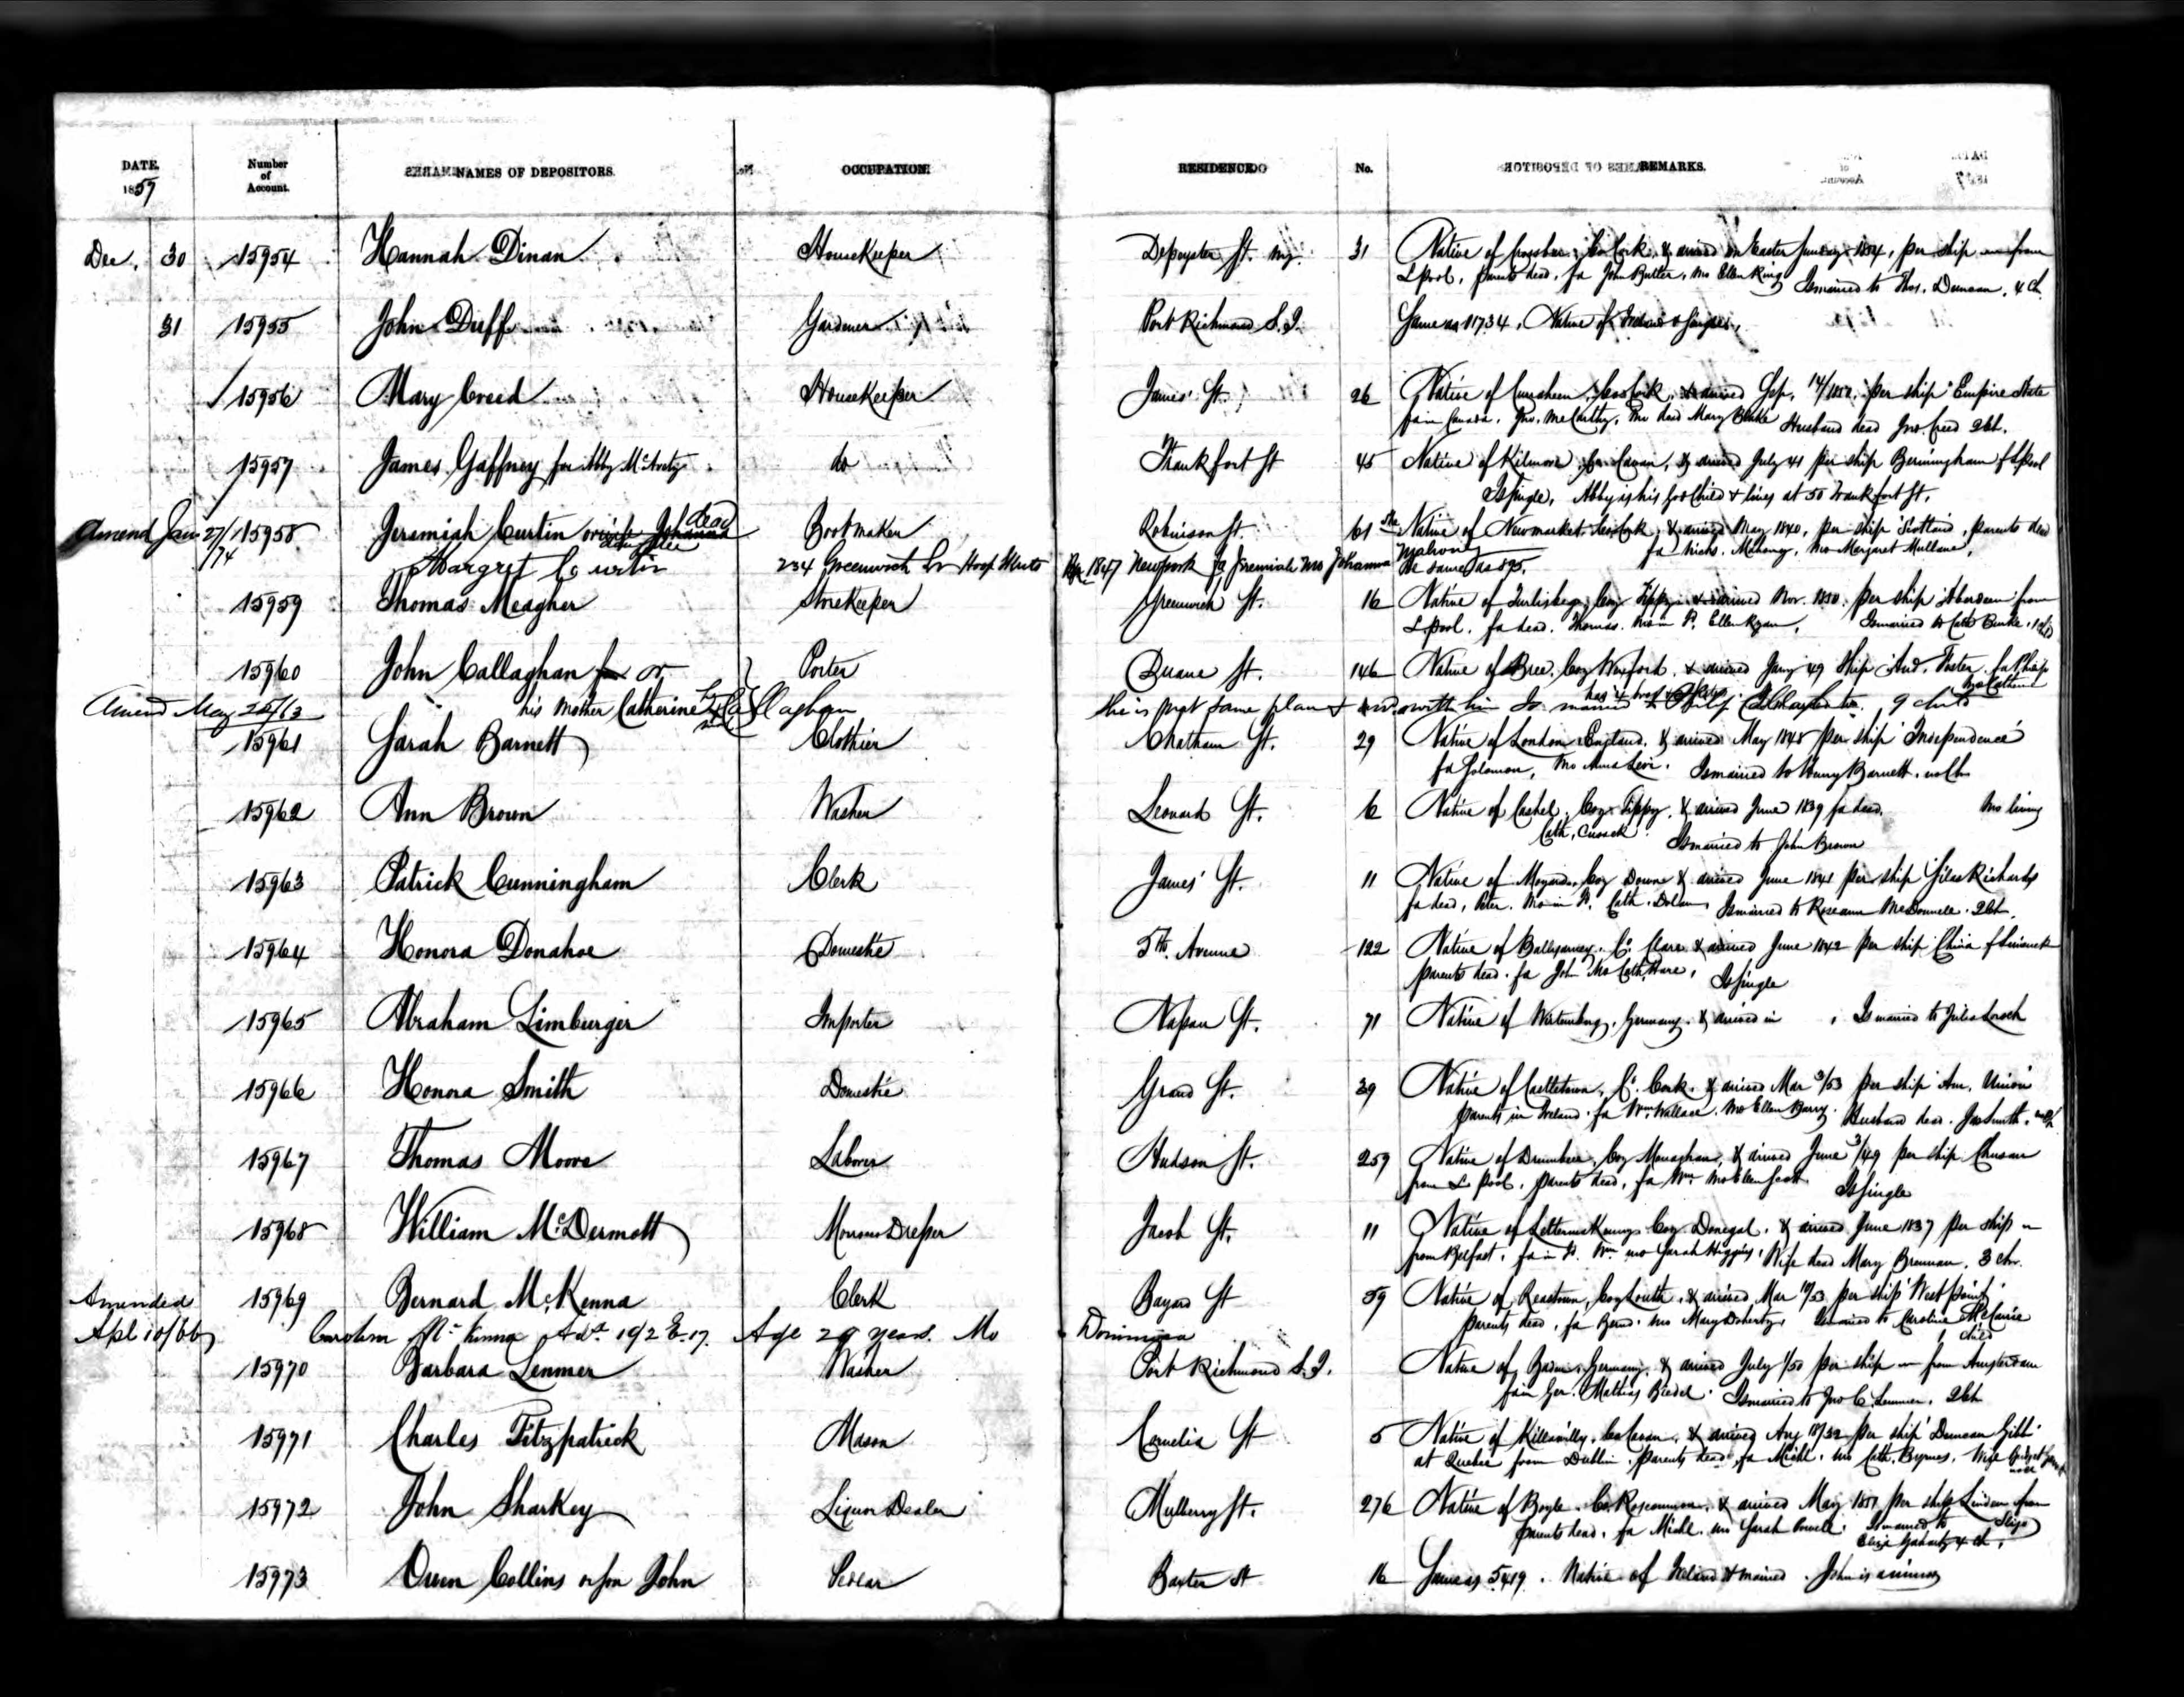 DATE. Number of Account. NAMES OF DEPOSITORS. OCCUPATION. RESIDENCE. No. REMARKS.
1857
Dec. 30 15954 Hannah Dinan Housekeeper Depeyster St. 31 Native of Co Cork, & arrived on Easter Sunday 1854, per ship — from
L Pool, parents dead, fa John Butler, mo Ellen King Is married to Thos. Duncan, 4 Ch.
31 15955 John Duff Gardener Port Richmond S.I. Same as 11734. Native of Ireland & Single.
15956 Mary Creed Housekeeper James' St. 26 Native of Co Cork, & arrived Sep. 14/1852, per ship Empire State
fa in Canada, Jno. McCarthy, mo dead Mary Husband dead Jno Creed 2 Ch.
15957 James Gaffney for Abby do Frankfort St 45 Native of Kilmore, Co. Cavan, & arrived July 41 per ship Bermingham f Lpool
Is Single, Abby is his God Child & lives at 50 Frankfort St.
Amend Jan 27/74 15958 Jeremiah Curtin or wife Johanna dead Bootmaker Robinson St. 61 Native of Newmarket, Co Cork, & arrived May 1840, per ship Scotland, parents dead
fa Michs. Mahony, mo Margaret Mullane,
daughter Margret Curtin 234 Greenwich St Hoop Skirts 1847 New york fa Jeremiah mo Johanna Mahony He same as 895.
15959 Thomas Meagher Storekeeper Greenwich St. 16 Native of Coy Tippy & arrived Nov. 1850 per ship Aberdeen from
L pool. fa dead. Thomas. mo in I. Ellen Ryan. Is married to Cath Burke, 1 ch
15960 John Callaghan or Porter Duane St. 146 Native of Bree, Coy Wexford, & arrived Jany 49 Ship And. Foster. fa Philip
mo Catherine
Amend May 26/63 his mother Catherine Callaghan She is Prot same plan & arrd with him Is married to Philip Callaghan 9 child
15961 Sarah Barnett Clothier Chatham St. 29 Native of London England, & arrived May 1848 per ship Independence
fa Solomon, mo Anna Levi. Is married to Henry Barnett. no Ch
15962 Ann Brown Washer Leonard St. 6 Native of Cashel, Coy Tippy, & arrived June 1839 fa dead. Mo living
Cath, Cusack Is married to John Brown
15963 Patrick Cunningham Clerk James' St. 11 Native of Coy Down & arrived June 1841 per ship Silas Richards
fa dead, Peter. Mo in I. Cath. Dolan, Is married to Roseann McDonnell. 2 Ch.
15964 Honora Donahoe Domestic 5th. Avenue 122 Native of Co. Clare & arrived June 1842 per ship China f Limerick
parents dead. fa John Mo Cath. Hare, Is Single
15965 Abraham Limburger Importer Nassau St. 71 Native of Wirtemburg, Germany, & arrived in , Is married to Julia Lorsch
15966 Honora Smith Domestic Grand St. 39 Native of Castletown, Co. Cork. & arrived Mar 3/53 per ship Am. Union
parents in Ireland. fa Wm. Wallace. Mo Ellen Barry. Husband dead. Jas Smith. no Ch
15967 Thomas Moore Laborer Hudson St. 259 Native of Coy Monaghan, & arrived June 3/49 per ship Chusan
from L pool, parents dead, fa Wm Mo Ellen Scott Is Single
15968 William McDermott Morocco Dresser Jacob St. 11 Native of Coy Donegal, & arrived June 1837 per ship —
from Belfast, fa in I. Wm mo Sarah Higgins, Wife dead Mary Brennan, 3 chn.
Amended 15969 Bernard McKenna Clerk Bayard St 59 Native of Coy Louth, & arrived Mar /53 per ship West point
parents dead, fa Bernd. mo Mary Doherty, Is married to Caroline
child
Apl 10/66 McKenna 192 E. 17. Age 29 years. Mo Dominica
15970 Barbara Lenmer Washer Port Richmond S.I. Native of Baden, Germany, & arrived July 1/50 per ship — from Amsterdam
fa in Ger. Mathias Is married to Jno C. Lenmer, 2 Ch
15971 Charles Fitzpatrick Mason Cornelia St 5 Native of Co Cavan, & arrived Aug 18/32 per ship Duncan Gibb
at Quebec from Dublin, parents dead, fa Michl. mo Cath. Byrnes, Wife Bridget
15972 John Sharkey Liquor Dealer Mulberry St. 276 Native of Boyle, Co. Roscommon, & arrived May per ship Linden from
Sligo
parents dead, fa Michl. mo Sarah Is married to
Eliza 4 ch.
15973 Owen Collins or son John Pedlar Baxter St 16 Same as 5419. Native of Ireland & married. John is a minor